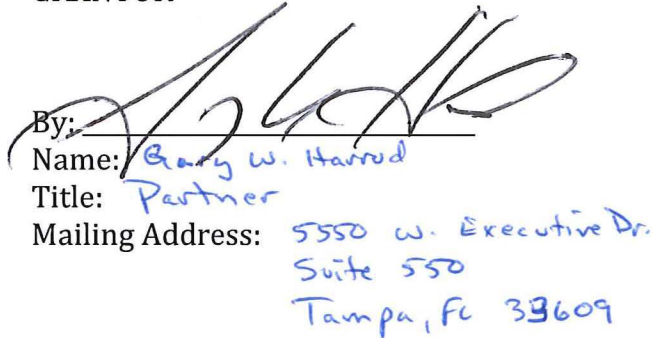 GRANTOR:
By:
Name: Gary W. Harrod
Title: Partner
Mailing Address: 5550 W. Executive Dr.
Suite 550
Tampa, FL 33609